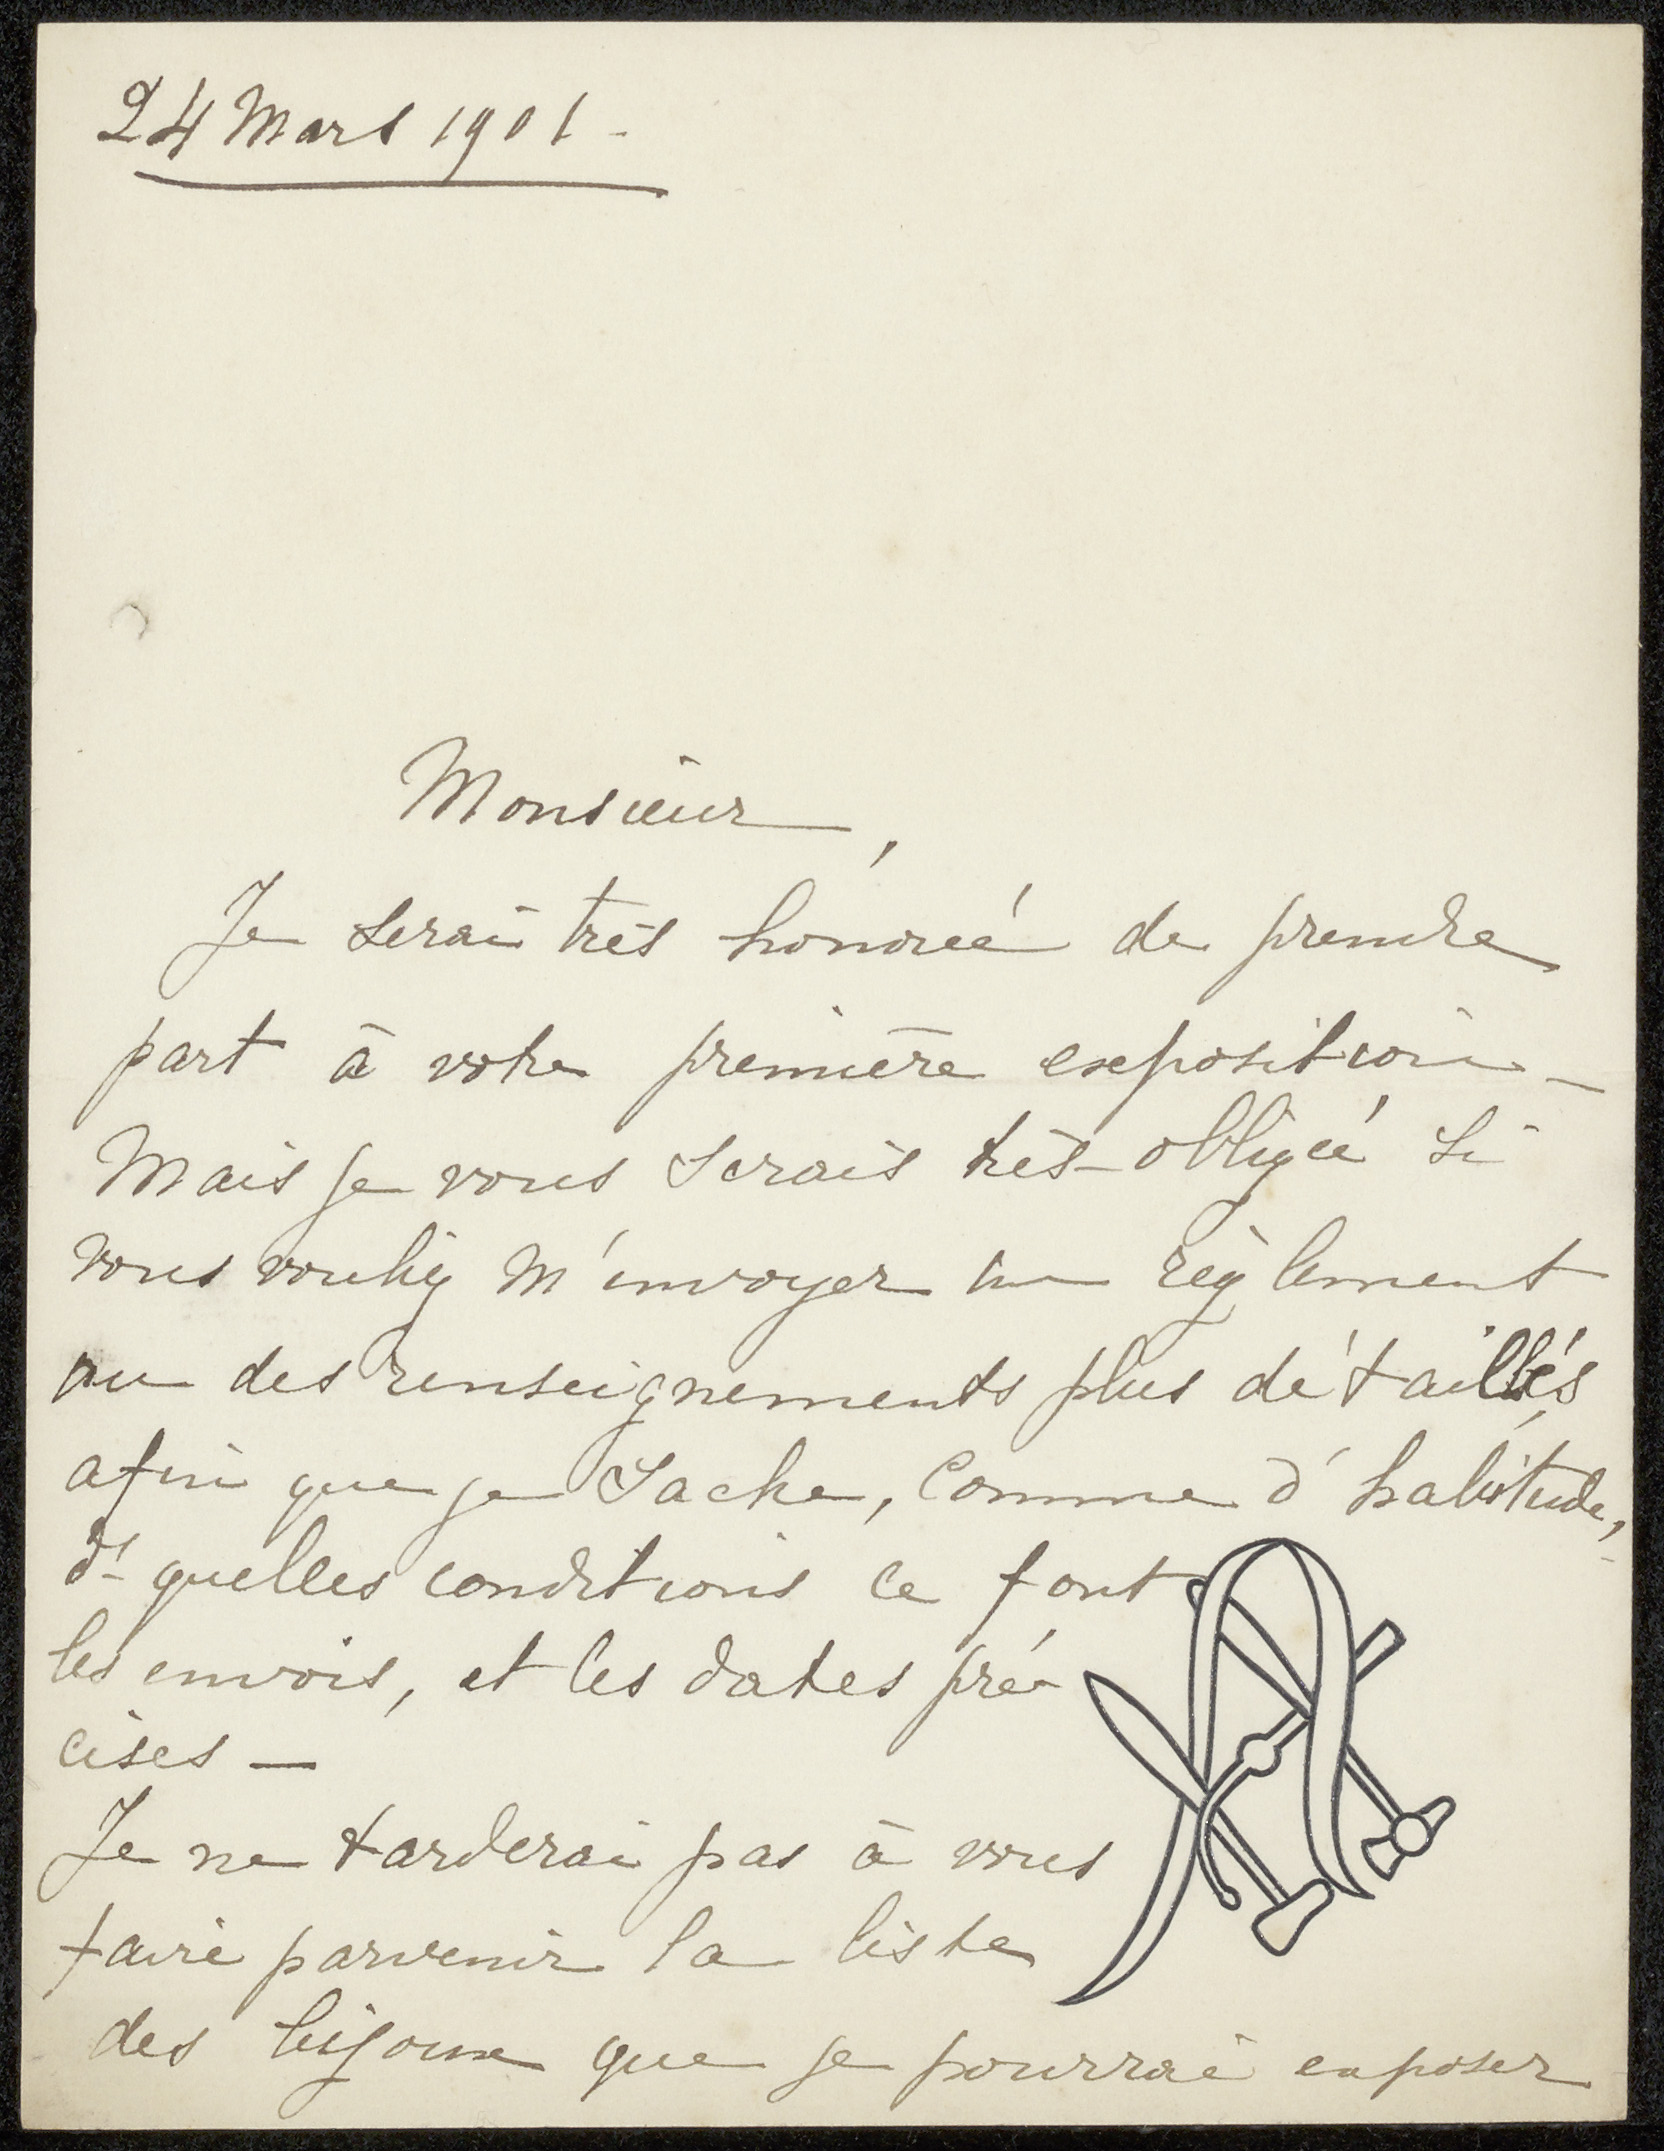 24 Mars 1901 -
Monsieur,
Je serai très honorée de prendre
part à votre première exposition -
Mais je vous serais très-obligée si
vous vouliez m'envoyer un règlement
ou des renseignements plus détaillés,
afin que je sache, comme d'habitude,
ds quelles conditions ce font
les envois, et les dates pré-
cises -
Je ne tarderai pas à vous
faire parvenir la liste
des bijoux que je pourrai exposer